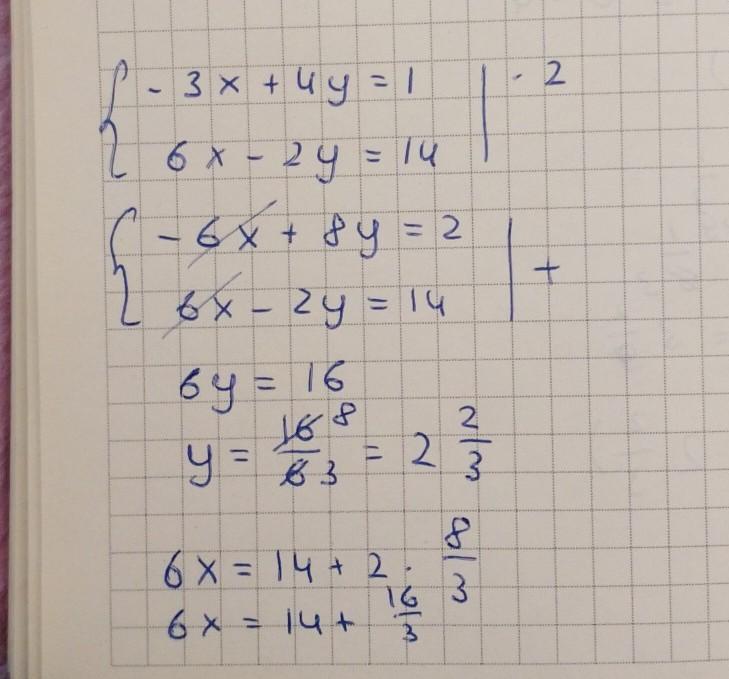 - 3x + 4y = 1 | · 2
6x - 2y = 14
- 6x + 8y = 2 | +
6x - 2y = 14
6y = 16
y = 16/6 8/3 = 2 2/3
6x = 14 + 2 · 8/3
6x = 14 + 16/3